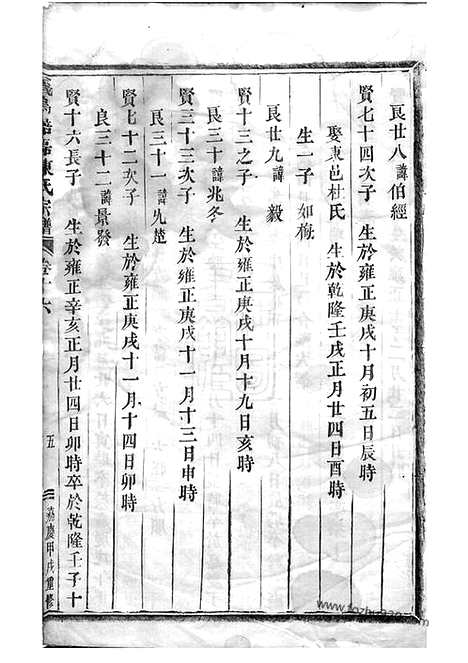 良廿八諱伯經
賢七十四次子　生於雍正庚戌十月初五日辰時
娶東邑杜氏　生於乾隆壬戌正月廿四日酉時
生一子　如梅
良廿九諱毅
賢十三之子　生於雍正庚戌十月十九日亥時
良三十諱兆冬
賢三十三次子　生於雍正庚戌十一月十三日申時
良三十一諱先楚
賢七十二次子　生於雍正庚戌十一月十四日卯時
良三十二諱景發
賢十六長子　生於雍正辛亥正月廿四日卯時卒於乾隆壬子十
陳氏宗譜
卷十六
五
嘉慶甲戌重修